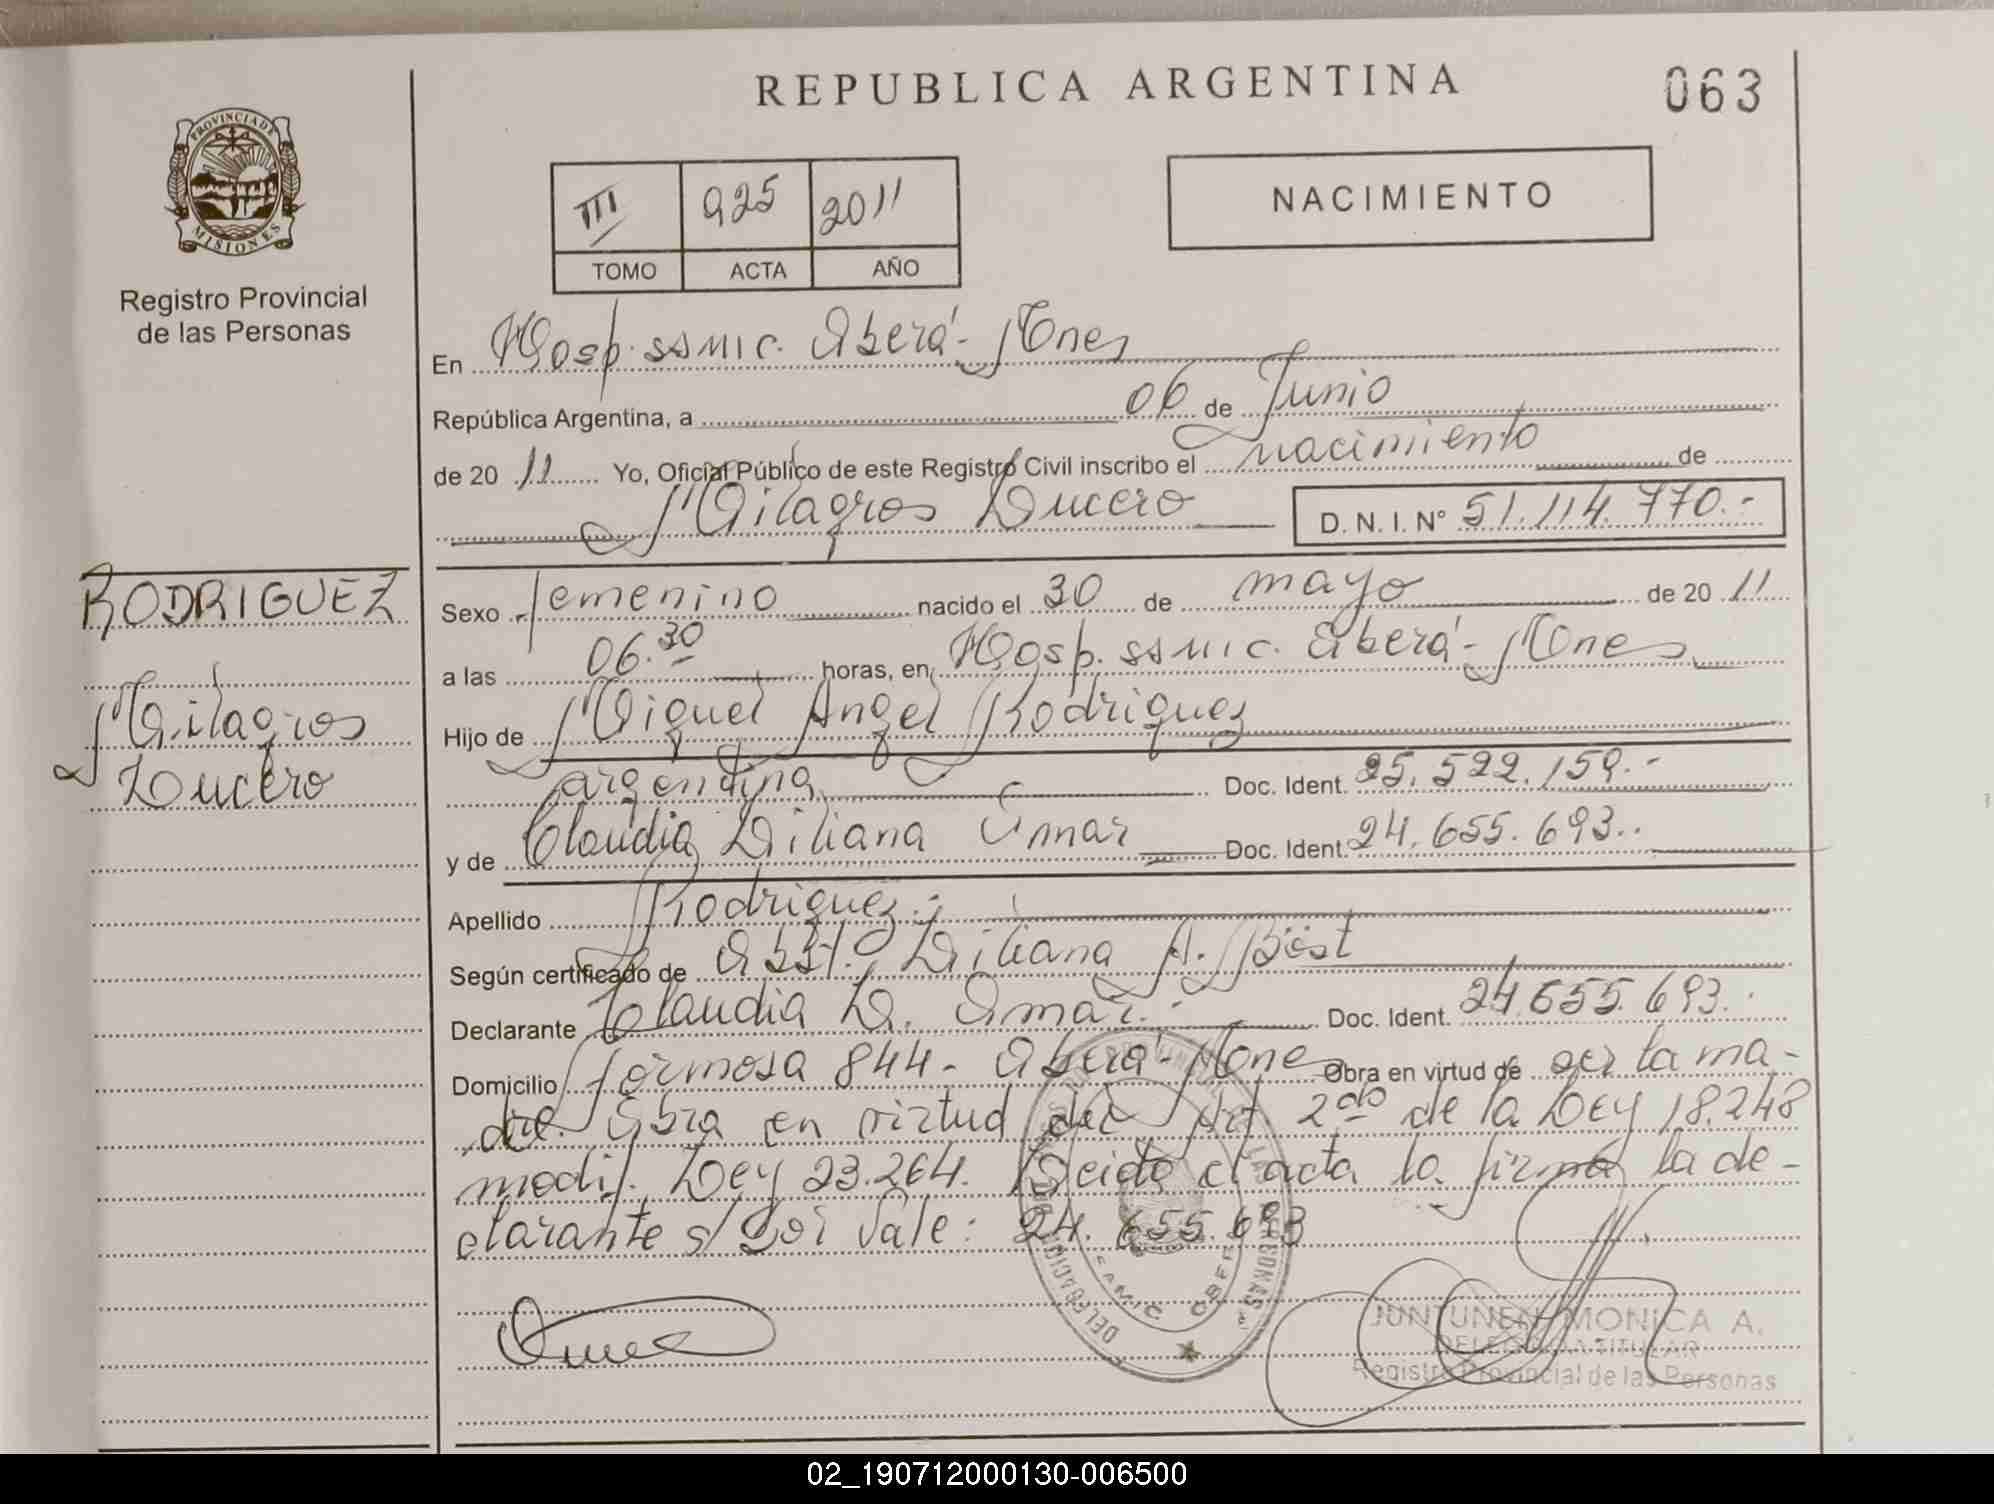 REPUBLICA ARGENTINA
063
PROVINCIA DE
MISIONES
Registro Provincial
de las Personas
III 925 2011
TOMO ACTA AÑO
NACIMIENTO
En Hosp. SAMIC. Oberá - Mnes
República Argentina, a 06 de Junio
de 20 11 Yo, Oficial Público de este Registro Civil inscribo el nacimiento de
Milagros Lucero D. N. I. N° 51.114.770.-
RODRIGUEZ
Milagros
Lucero
Sexo femenino nacido el 30 de mayo de 20 11
a las 06.30 horas, en Hosp. SAMIC. Oberá - Mnes
Hijo de Miguel Angel Rodriguez
argentina Doc. Ident. 25.522.159.-
y de Claudia Liliana Omar Doc. Ident. 24.655.693..
Apellido Rodriguez.-
Según certificado de Obst. Liliana A. Böst
Declarante Claudia L. Omar.- Doc. Ident. 24.655.693.-
Domicilio formosa 844 - Oberá - Mnes Obra en virtud de ser la ma-
dre. Obra en virtud del Art 2do de la Ley 18.248
modif. Ley 23.264. Leida el acta la firma la de-
clarante s/ Vale: 24.655.693
JUNTUNEN MONICA A.
DELEGADA TITULAR
Registro Provincial de las Personas
02_190712000130-006500